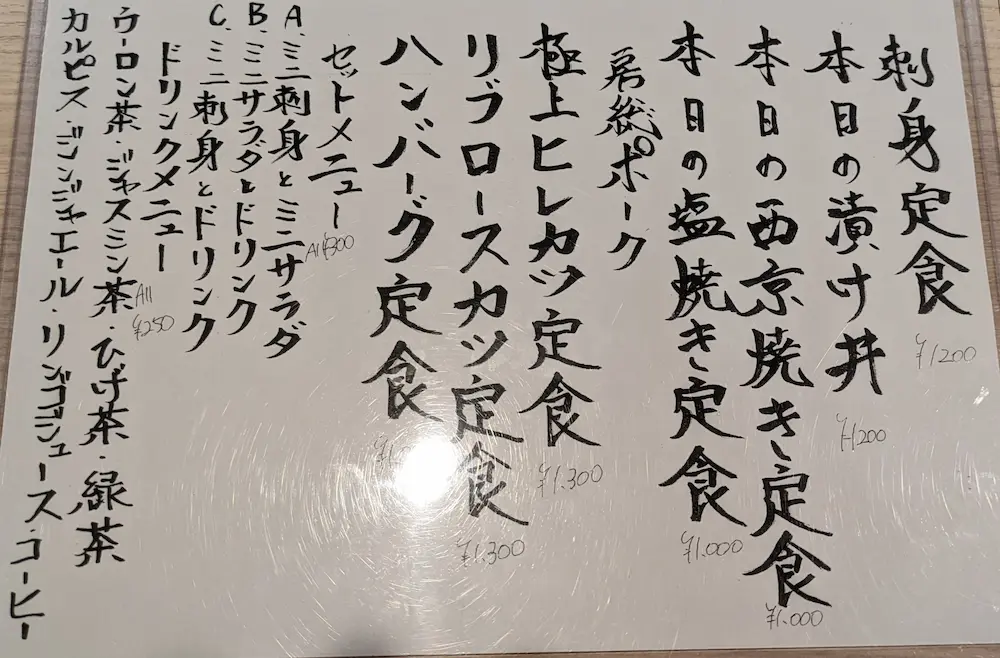 刺身定食 ¥1200
本日の漬け丼 ¥1200
本日の西京焼き定食 ¥1.000
本日の塩焼き定食 ¥1.000
房総ポーク
極上ヒレカツ定食 ¥1.300
リブロースカツ定食 ¥1.300
ハンバーグ定食
セットメニュー All ¥300
A.ミニ刺身とミニサラダ
B.ミニサラダとドリンク
C.ミニ刺身とドリンク
ドリンクメニュー All ¥250
ウーロン茶・ジャスミン茶・ひげ茶・緑茶
カルピス・ジンジャエール・リンゴジュース・コーヒー